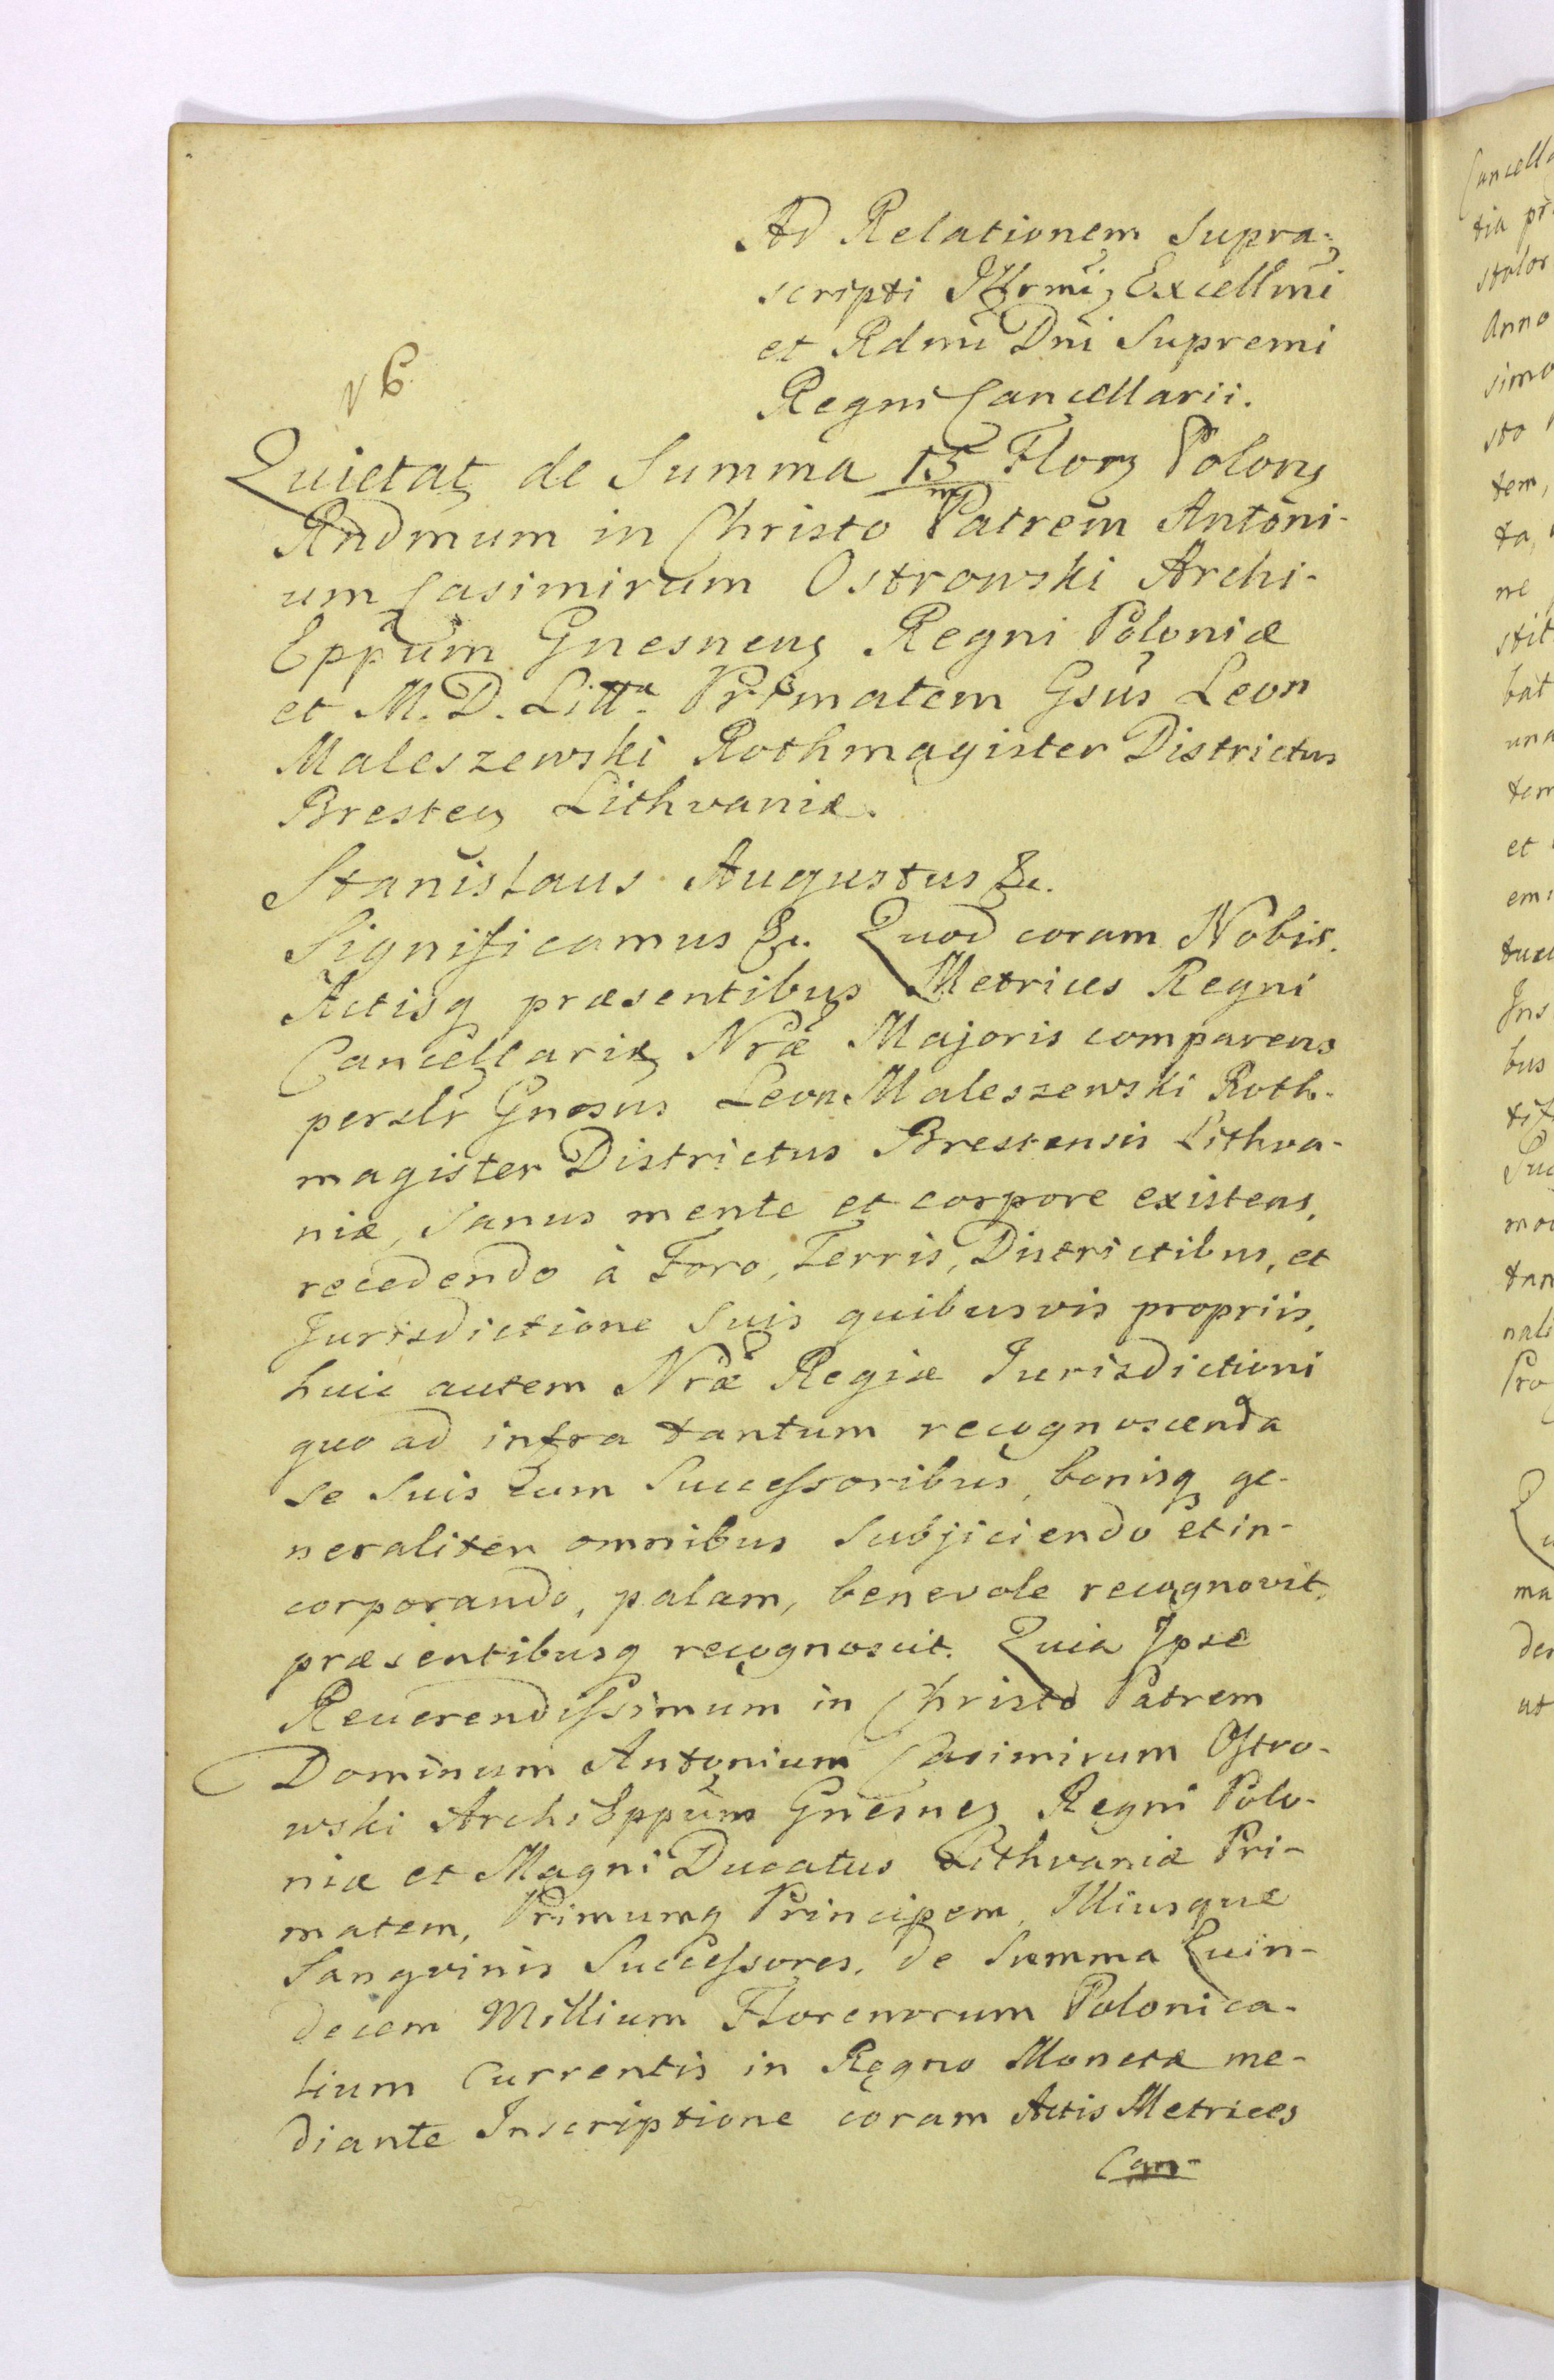 Ad Relationem supra-
scripti Illrmi, Excellmi
et Rdmi Dni Supremi
Regni Cancellarii.
N 6.
Quietatz de Summa 15m Florz Polonz
Rndmum in Christo Patrem Antoni-
um Casimirum Ostrowski Archi-
Eppum Gnesnens Regni Poloniæ
et M. D. Litt. Primatem Gsus Leon
Maleszewski Rothmagister Districtus
Bresten Lithvaniæ.
Stanislaus Augustus &c.
Significamus &c. Quod coram Nobis
Actisq præsentibus Metrices Regni
Cancellariæ Nræ Majoris comparens
perslr Gnosus Leon Maleszewski Roth-
magister Districtus Brestensis Lithva-
niæ, sanus mente et corpore existens,
recedendo à Foro, Terris, Districtibus, et
Jurisdictione suis quibusvis propriis,
huic autem Nræ Regiæ Jurisdictioni
quo ad infra tantum recognoscenda
se suis cum Successoribus, bonisq ge-
neraliter omnibus subjiciendo et in-
corporando, palam, benevole recognovit,
præsentibusq recognoscit. Quia Ipse
Reverendissimum in Christo Patrem
Dominum Antonium Casimirum Ostro-
wski Archi Eppum Gnesnen Regni Polo-
niæ et Magni Ducatus Lithvaniæ Pri-
matem, Primumq Principem, Illiusque
Sangvinis Successores, de Summa Quin-
decem Millium Florenorum Polonica-
lium Currentis in Regno Monetæ me-
diante Inscriptione coram Actis Metrices
Can-